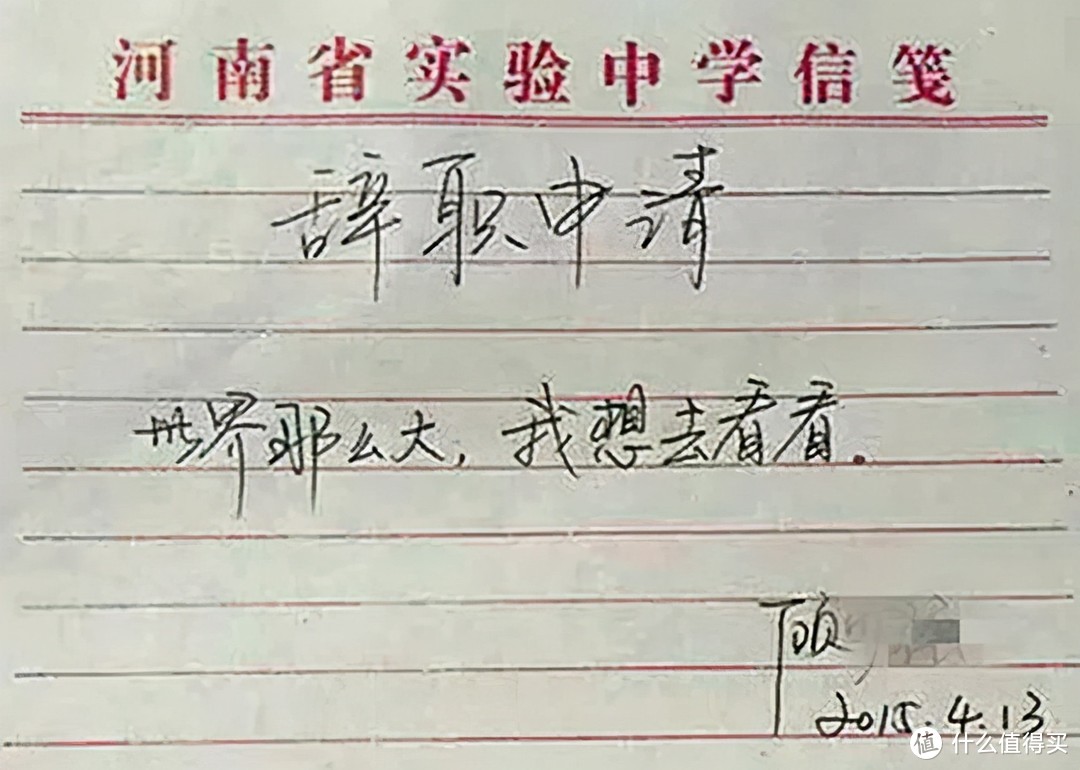 河南省实验中学信笺
辞职申请
世界那么大，我想去看看。
顾
2015.4.13
值 什么值得买